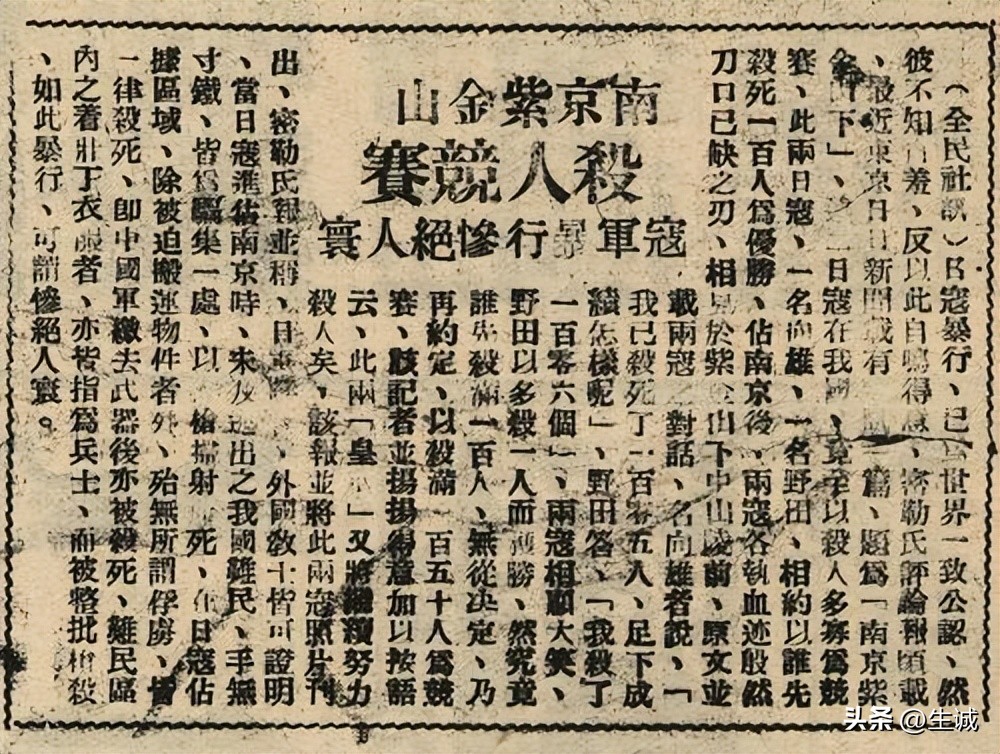 南京紫金山
殺人競賽
寇軍暴行慘絕人寰
（全民社訊）日寇暴行、已世界一致公認、然
彼不知自羞、反以此自鳴得意、密勒氏評論報頃載
、最近東京日日新聞載有一篇、題爲「南京紫
金山下」、二日寇在我國、竟至以殺人多寡爲競
賽、此兩日寇、一名向雄、一名野田、相約以誰先
殺死一百人爲優勝、佔南京後、兩寇各執血迹殷然
刀口已缺之刃、相見於紫金山下中山陵前、原文並
載兩寇之對話、名向雄者說、「
我已殺死了一百零五人、足下成
績怎樣呢」、野田答、「我殺了
一百零六個」、兩寇相顧大笑、
野田以多殺一人而獲勝、然究竟
誰先殺滿一百人、無從決定、乃
再約定、以殺滿一百五十人爲競
賽、該記者並揚揚得意加以按語
云、此兩「皇」又將繼續努力
殺人矣、該報並將此兩寇照片刊
出、密勒氏報並稱、日、外國敎士皆可證明
、當日寇進佔南京時、未及逃出之我國難民、手無
寸鐵、皆爲驅集一處、以槍掃射死、在日寇佔
據區域、除被迫搬運物件者外、殆無所謂俘虜、皆
一律殺死、卽中國軍繳去武器後亦被殺死、難民區
內之着壯丁衣服者、亦皆指爲兵士、而被整批槍殺
、如此暴行、可謂慘絕人寰。
头条 @生诚